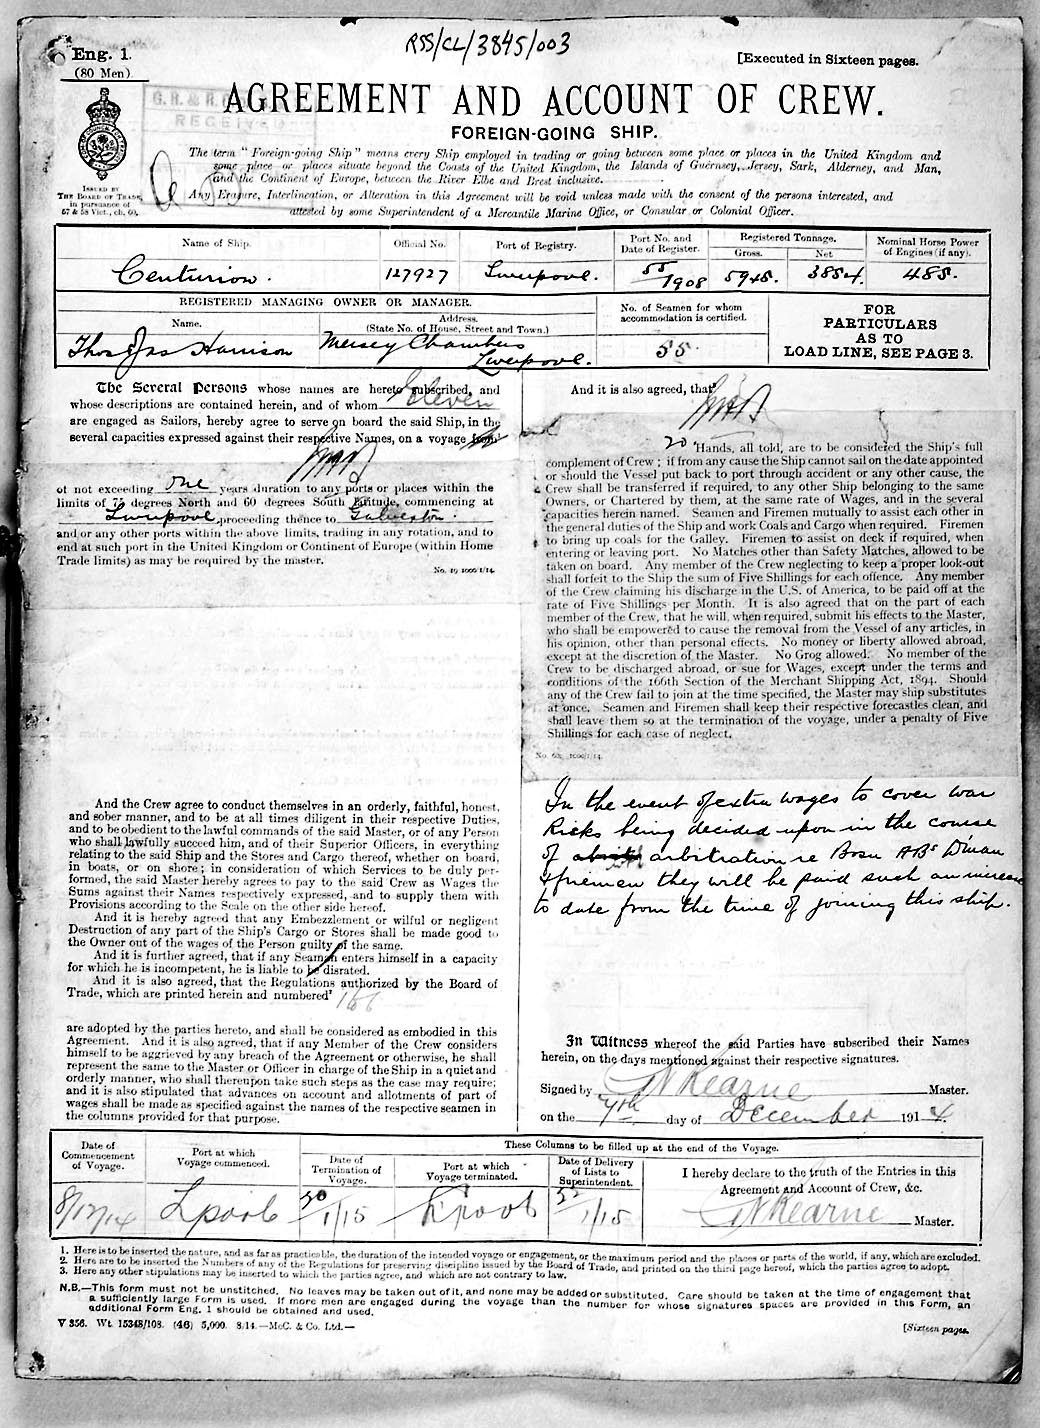 RSS/CL/3845/003
Eng. 1.
(80 Men)
[Executed in Sixteen pages.
RECEIVED
AGREEMENT AND ACCOUNT OF CREW.
FOREIGN-GOING SHIP.
ISSUED BY
THE BOARD OF TRADE,
in pursuance of
57 & 58 Vict., ch. 60.
The term "Foreign-going Ship" means every Ship employed in trading or going between some place or places in the United Kingdom and
some place or places situate beyond the Coasts of the United Kingdom, the Islands of Guernsey, Jersey, Sark, Alderney, and Man,
and the Continent of Europe, between the River Elbe and Brest inclusive.
Any Erasure, Interlineation, or Alteration in this Agreement will be void unless made with the consent of the persons interested, and
attested by some Superintendent of a Mercantile Marine Office, or Consular or Colonial Officer.
Name of Ship. Official No. Port of Registry. Port No. and Date of Register. Registered Tonnage. Gross. Net Nominal Horse Power of Engines (if any).
Centurion. 127927 Liverpool. 55/1908 5945. 3854. 485.
REGISTERED MANAGING OWNER OR MANAGER.
Name. Address. (State No. of House, Street and Town.)
No. of Seamen for whom accommodation is certified.
Thos & Jas Harrison Mersey Chambers Liverpool. 55
FOR
PARTICULARS
AS TO
LOAD LINE, SEE PAGE 3.
The Several Persons whose names are hereto subscribed, and
whose descriptions are contained herein, and of whom Eleven
are engaged as Sailors, hereby agree to serve on board the said Ship, in the
several capacities expressed against their respective Names, on a voyage from
of not exceeding one years duration to any ports or places within the
limits of 75 degrees North and 60 degrees South Latitude, commencing at
Liverpool proceeding thence to Galveston.
and/or any other ports within the above limits, trading in any rotation, and to
end at such port in the United Kingdom or Continent of Europe (within Home
Trade limits) as may be required by the master.
No. 19 1000/1/14
And the Crew agree to conduct themselves in an orderly, faithful, honest,
and sober manner, and to be at all times diligent in their respective Duties,
and to be obedient to the lawful commands of the said Master, or of any Person
who shall lawfully succeed him, and of their Superior Officers, in everything
relating to the said Ship and the Stores and Cargo thereof, whether on board,
in boats, or on shore; in consideration of which Services to be duly per-
formed, the said Master hereby agrees to pay to the said Crew as Wages the
Sums against their Names respectively expressed, and to supply them with
Provisions according to the Scale on the other side hereof.
And it is hereby agreed that any Embezzlement or wilful or negligent
Destruction of any part of the Ship's Cargo or Stores shall be made good to
the Owner out of the wages of the Person guilty of the same.
And it is further agreed, that if any Seaman enters himself in a capacity
for which he is incompetent, he is liable to be disrated.
And it is also agreed, that the Regulations authorized by the Board of
Trade, which are printed herein and numbered 1 to 6
are adopted by the parties hereto, and shall be considered as embodied in this
Agreement. And it is also agreed, that if any Member of the Crew considers
himself to be aggrieved by any breach of the Agreement or otherwise, he shall
represent the same to the Master or Officer in charge of the Ship in a quiet and
orderly manner, who shall thereupon take such steps as the case may require;
and it is also stipulated that advances on account and allotments of part of
wages shall be made as specified against the names of the respective seamen in
the columns provided for that purpose.
And it is also agreed, that
20 Hands, all told, are to be considered the Ship's full
complement of Crew; if from any cause the Ship cannot sail on the date appointed
or should the Vessel put back to port through accident or any other cause, the
Crew shall be transferred if required, to any other Ship belonging to the same
Owners, or Chartered by them, at the same rate of Wages, and in the several
capacities herein named. Seamen and Firemen mutually to assist each other in
the general duties of the Ship and work Coals and Cargo when required. Firemen
to bring up coals for the Galley. Firemen to assist on deck if required, when
entering or leaving port. No Matches other than Safety Matches, allowed to be
taken on board. Any member of the Crew neglecting to keep a proper look-out
shall forfeit to the Ship the sum of Five Shillings for each offence. Any member
of the Crew claiming his discharge in the U.S. of America, to be paid off at the
rate of Five Shillings per Month. It is also agreed that on the part of each
member of the Crew, that he will, when required, submit his effects to the Master,
who shall be empowered to cause the removal from the Vessel of any articles, in
his opinion, other than personal effects. No money or liberty allowed abroad,
except at the discretion of the Master. No Grog allowed. No member of the
Crew to be discharged abroad, or sue for Wages, except under the terms and
conditions of the 166th Section of the Merchant Shipping Act, 1894. Should
any of the Crew fail to join at the time specified, the Master may ship substitutes
at once. Seamen and Firemen shall keep their respective forecastles clean, and
shall leave them so at the termination of the voyage, under a penalty of Five
Shillings for each case of neglect.
No. 1000/1/14
In the event of extra wages to cover war
Risks being decided upon in the course
of arbitration re Bosn ABs D'man
& firemen they will be paid such an increase
to date from the time of joining this ship.
In Witness whereof the said Parties have subscribed their Names
herein, on the days mentioned against their respective signatures.
Signed by Kearne Master.
on the 7th day of December 1914.
These Columns to be filled up at the end of the Voyage.
Date of Commencement of Voyage. Port at which Voyage commenced. Date of Termination of Voyage. Port at which Voyage terminated. Date of Delivery of Lists to Superintendent.
I hereby declare to the truth of the Entries in this
Agreement and Account of Crew, &c.
8/12/14 Lpool 20/1/15 Lpool 22/1/15 Kearne Master.
1. Here is to be inserted the nature, and as far as practicable, the duration of the intended voyage or engagement, or the maximum period and the places or parts of the world, if any, which are excluded.
2. Here are to be inserted the Numbers of any of the Regulations for preserving discipline issued by the Board of Trade, and printed on the third page hereof, which the parties agree to adopt.
3. Here any other stipulations may be inserted to which the parties agree, and which are not contrary to law.
N.B.—This form must not be unstitched. No leaves may be taken out of it, and none may be added or substituted. Care should be taken at the time of engagement that
a sufficiently large Form is used. If more men are engaged during the voyage than the number for whose signatures spaces are provided in this Form, an
additional Form Eng. 1 should be obtained and used.
V 356. Wt. 15348/108. (46) 5,000. 8/14.—McC. & Co. Ltd.—
[Sixteen pages.